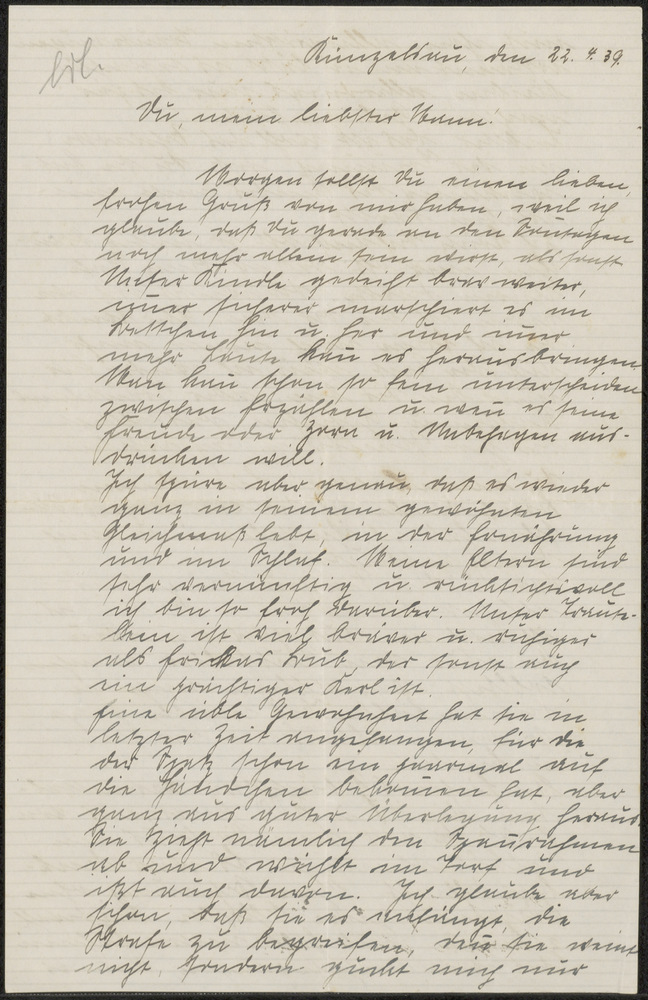 Künzelsau, den 22. 4. 39.
Du, mein liebster Mann!
Morgen sollst Du einen lieben,
frohen Gruß von mir haben, weil ich
glaube, daß Du gerade an den Sonntagen
noch mehr allein sein wirst, als sonst.
Unser Kindle gedeiht brav weiter,
immer sicherer marschiert es im
Bettchen hin u. her und immer
mehr Laute kann es herausbringen.
Man kann schon so fein unterscheiden
zwischen Erzählen u. wenn es seine
Freude oder Zorn u. Unbehagen aus-
drücken will.
Ich spüre aber genau, daß es wieder
ganz in seinem gewohnten
Gleichmaß lebt, in der Ernährung
und im Schlaf. Meine Eltern sind
sehr vernünftig u. rücksichtsvoll
ich bin so froh darüber. Unser Traute-
lein ist viel bräver u. ruhiger
als Bub, der sonst auch
ein prächtiger Kerl ist.
Eine üble Gewohnheit hat sie in
letzter Zeit angefangen, für die
der Spatz schon ein paarmal auf
die Händchen bekommen hat, aber
ganz aus guter Überlegung heraus.
Sie zieht nämlich den
ab und im Torf und
ißt auch davon. Ich glaube aber
schon, daß sie es anfängt, die
Strafe zu begreifen, denn sie weint
nicht, sondern guckt mich nur